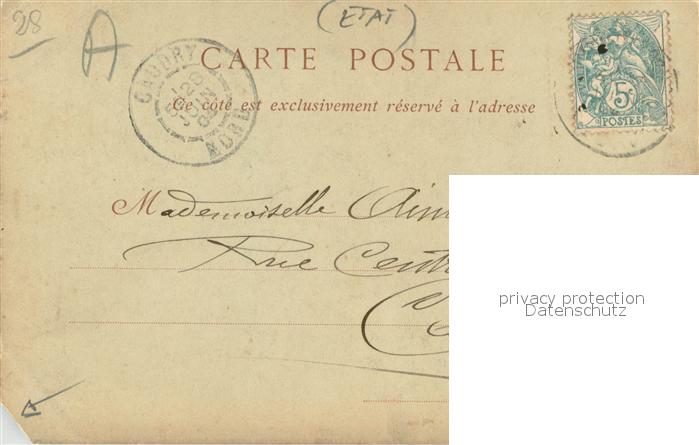 28
A
(ETAT)
CARTE POSTALE
Ce côté est exclusivement réservé à l'adresse
CAUDRY
NORD
5c
POSTES
Mademoiselle
Rue
privacy protection
Datenschutz